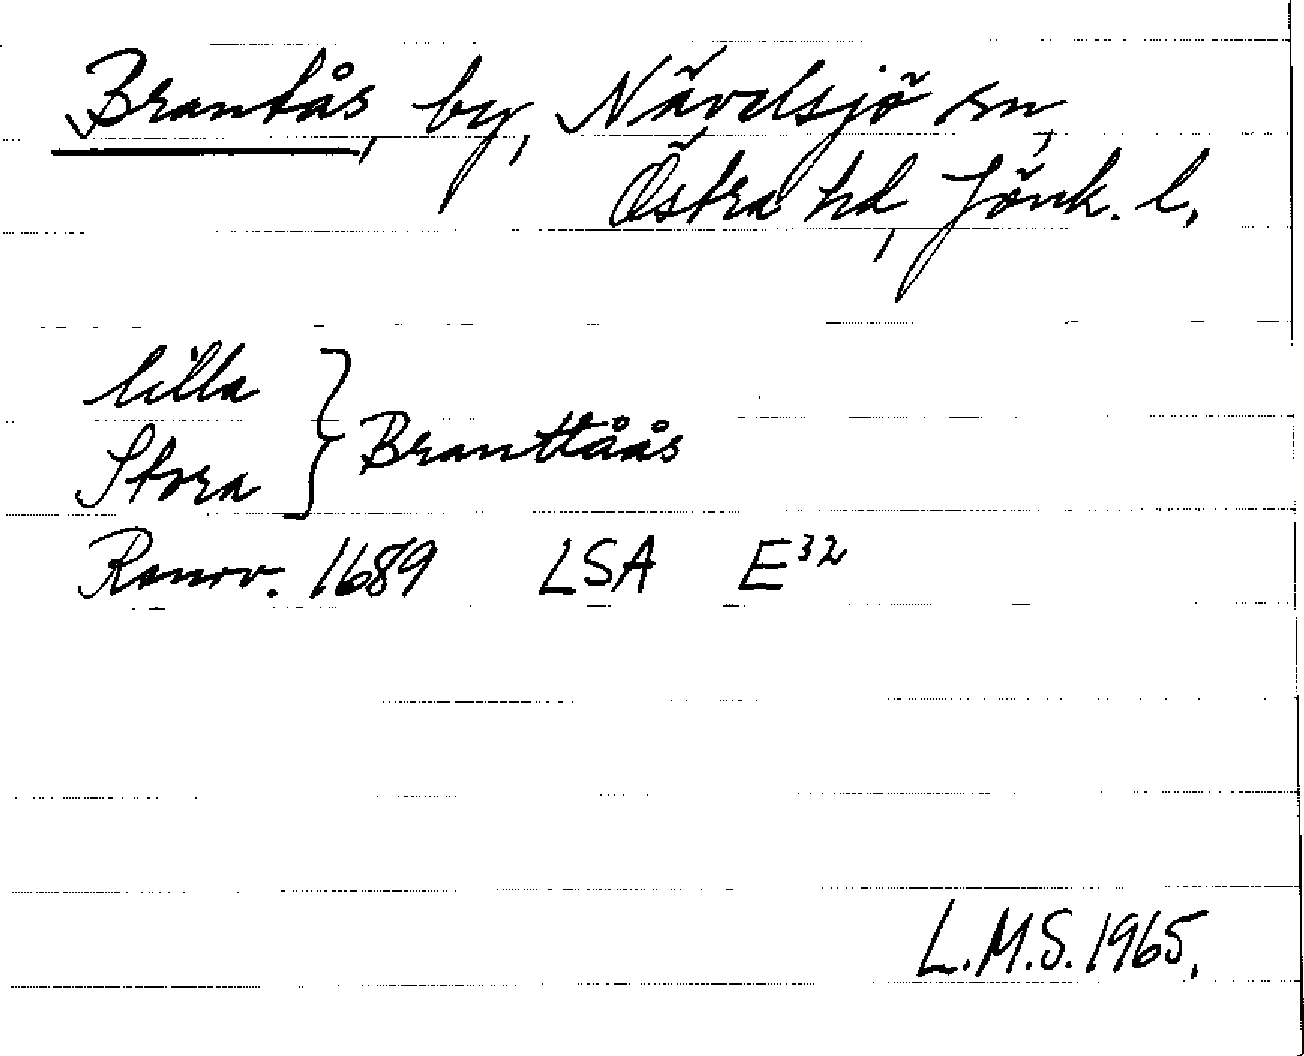 Brantås, by, Nävelsjö sn,
Östra hd, Jönk. l.
lilla
Stora } Branttåås
Renov. 1689 LSA E³²
L.M.S. 1965.